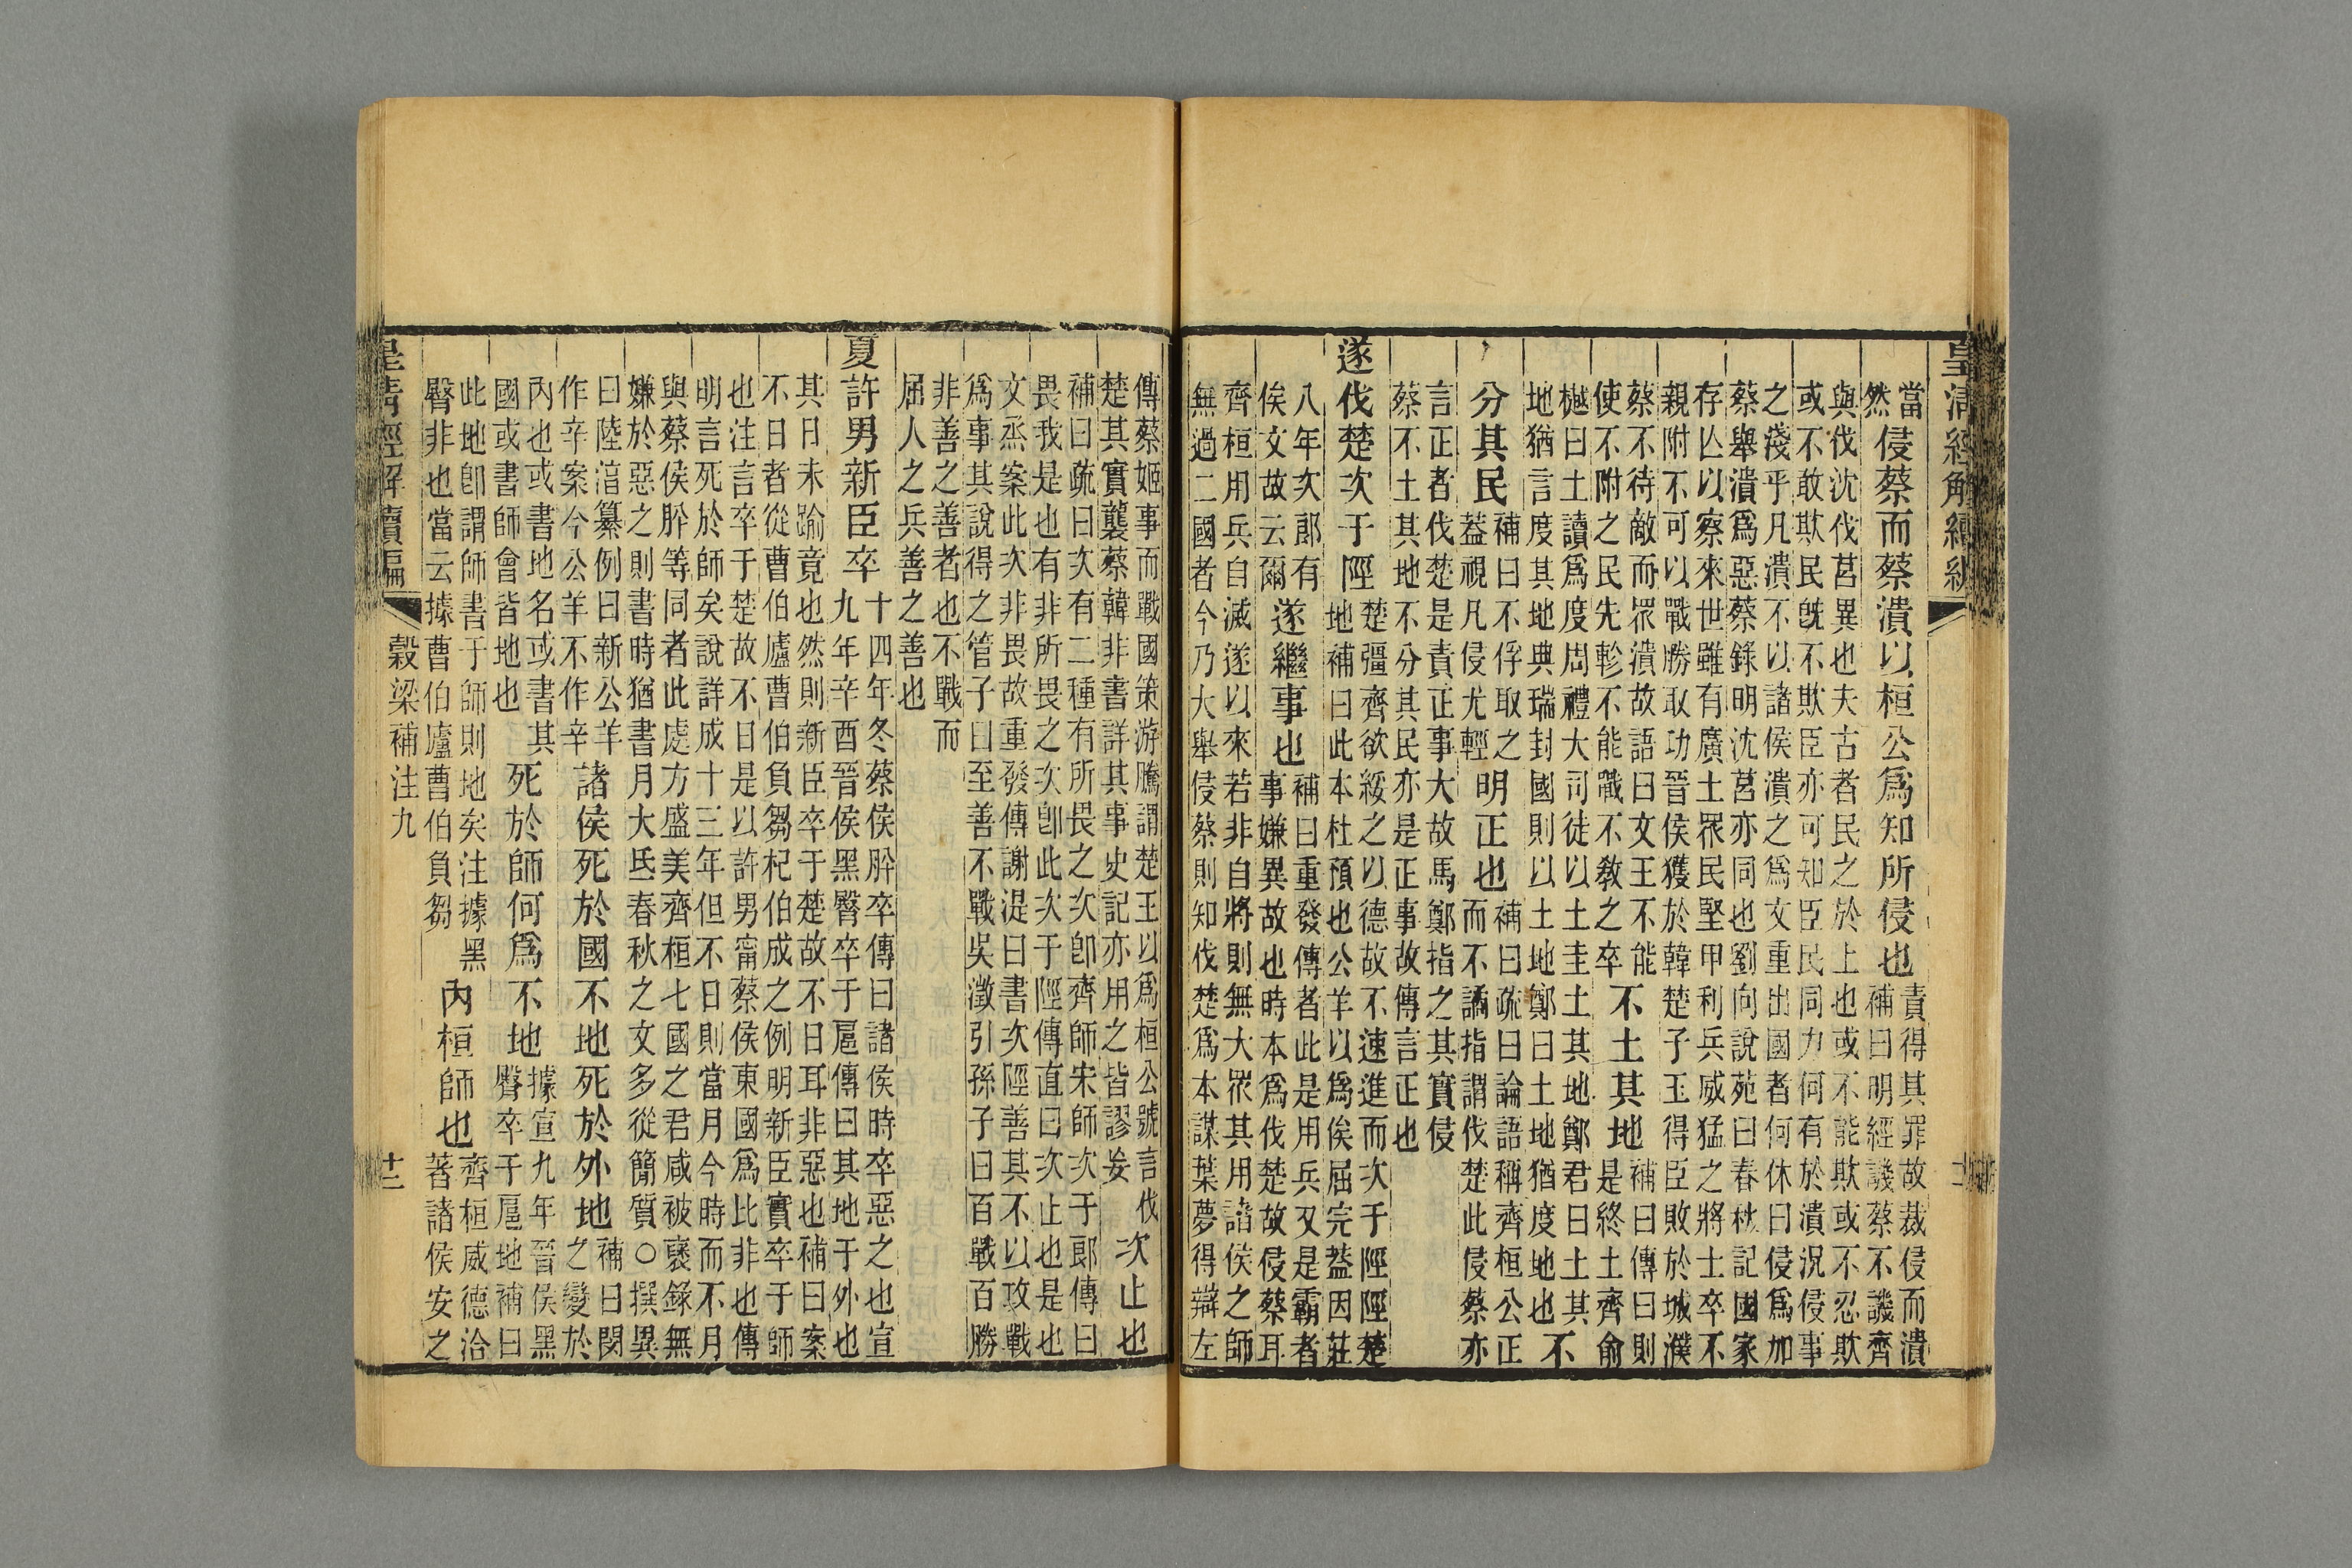 皇清經解續編
當然侵蔡而蔡潰以桓公爲知所侵也責得其罪故裁侵而潰
補曰明經譏蔡不譏齊
與伐沈伐莒異也夫古者民之於上也或不能欺或不忍欺
或不敢欺民旣不欺臣亦可知臣民同力何有於潰況侵事
之淺乎凡潰不以諸侯潰之爲文重出國者何休曰侵爲加
蔡舉潰爲惡蔡錄明沈莒亦同也劉向說苑曰春秋記國家
存亾以察來世雖有廣土衆民堅甲利兵威猛之將士卒不
親附不可以戰勝取功晉侯獲於韓楚子玉得臣敗於城濮
蔡不待敵而衆潰故語曰文王不能
使不附之民先軫不能戰不敎之卒
不土其地補曰傳曰則
是終土齊俞
樾曰土讀爲度周禮大司徒以土圭土其地鄭君曰土其
地猶言度其地典瑞封國則以土地鄭曰土地猶度地也
不
分其民補曰不俘取之
蓋視凡侵尤輕
明正也補曰疏曰論語稱齊桓公正
而不譎指謂伐楚此侵蔡亦
言正者伐楚是責正事大故馬鄭指之其實侵
蔡不土其地不分其民亦是正事故傳言正也
遂伐楚次于陘楚彊齊欲綏之以德故不速進而次于陘陘楚
地補曰此本杜預也公羊以爲俟屈完蓋因莊
八年次郎有
俟文故云爾
遂繼事也補曰重發傳者此是用兵又是霸者
事嫌異故也時本爲伐楚故侵蔡耳
齊桓用兵自滅遂以來若非自將則無大衆其用諸侯之師
無過二國者今乃大舉侵蔡則知伐楚爲本謀葉夢得辯左
傳蔡姬事而戰國策游騰謂楚王以爲桓公號言伐
楚其實襲蔡韓非書詳其事史記亦用之皆謬妄
次止也
補曰疏曰次有二種有所畏之次卽齊師宋師次于郎傳曰
畏我是也有非所畏之次卽此次于陘傳直曰次止也是也
文烝案此次非畏故重發傳謝湜曰書次陘善其不以攻戰
爲事其說得之管子曰至善不戰吳澂引孫子曰百戰百勝
非善之善者也不戰而
屈人之兵善之善也
夏許男新臣卒十四年冬蔡侯肸卒傳曰諸侯時卒惡之也宣
九年辛酉晉侯黑臀卒于扈傳曰其地于外也
其日未踰竟也然則新臣卒于楚故不日耳非惡也補曰案
不日者從曹伯廬曹伯負芻杞伯成之例明新臣實卒于師
也注言卒于楚故不日是以許男甯蔡侯東國爲比非也傳
明言死於師矣說詳成十三年但不日則當月今時而不月
與蔡侯肸等同者此處方盛美齊桓七國之君咸被襃錄無
嫌於惡之則書時猶書月大氐春秋之文多從簡質○撰異
曰陸淳纂例曰新公羊
作辛案今公羊不作辛
諸侯死於國不地死於外地補曰閔
之變於
內也或書地名或書其
國或書師會皆地也
死於師何爲不地據宣九年晉侯黑
臀卒于扈地補曰
此地卽謂師書于師則地矣注據黑
臀非也當云據曹伯廬曹伯負芻
內桓師也齊桓威德洽
著諸侯安之
皇清經解續編
穀梁補注九
十二